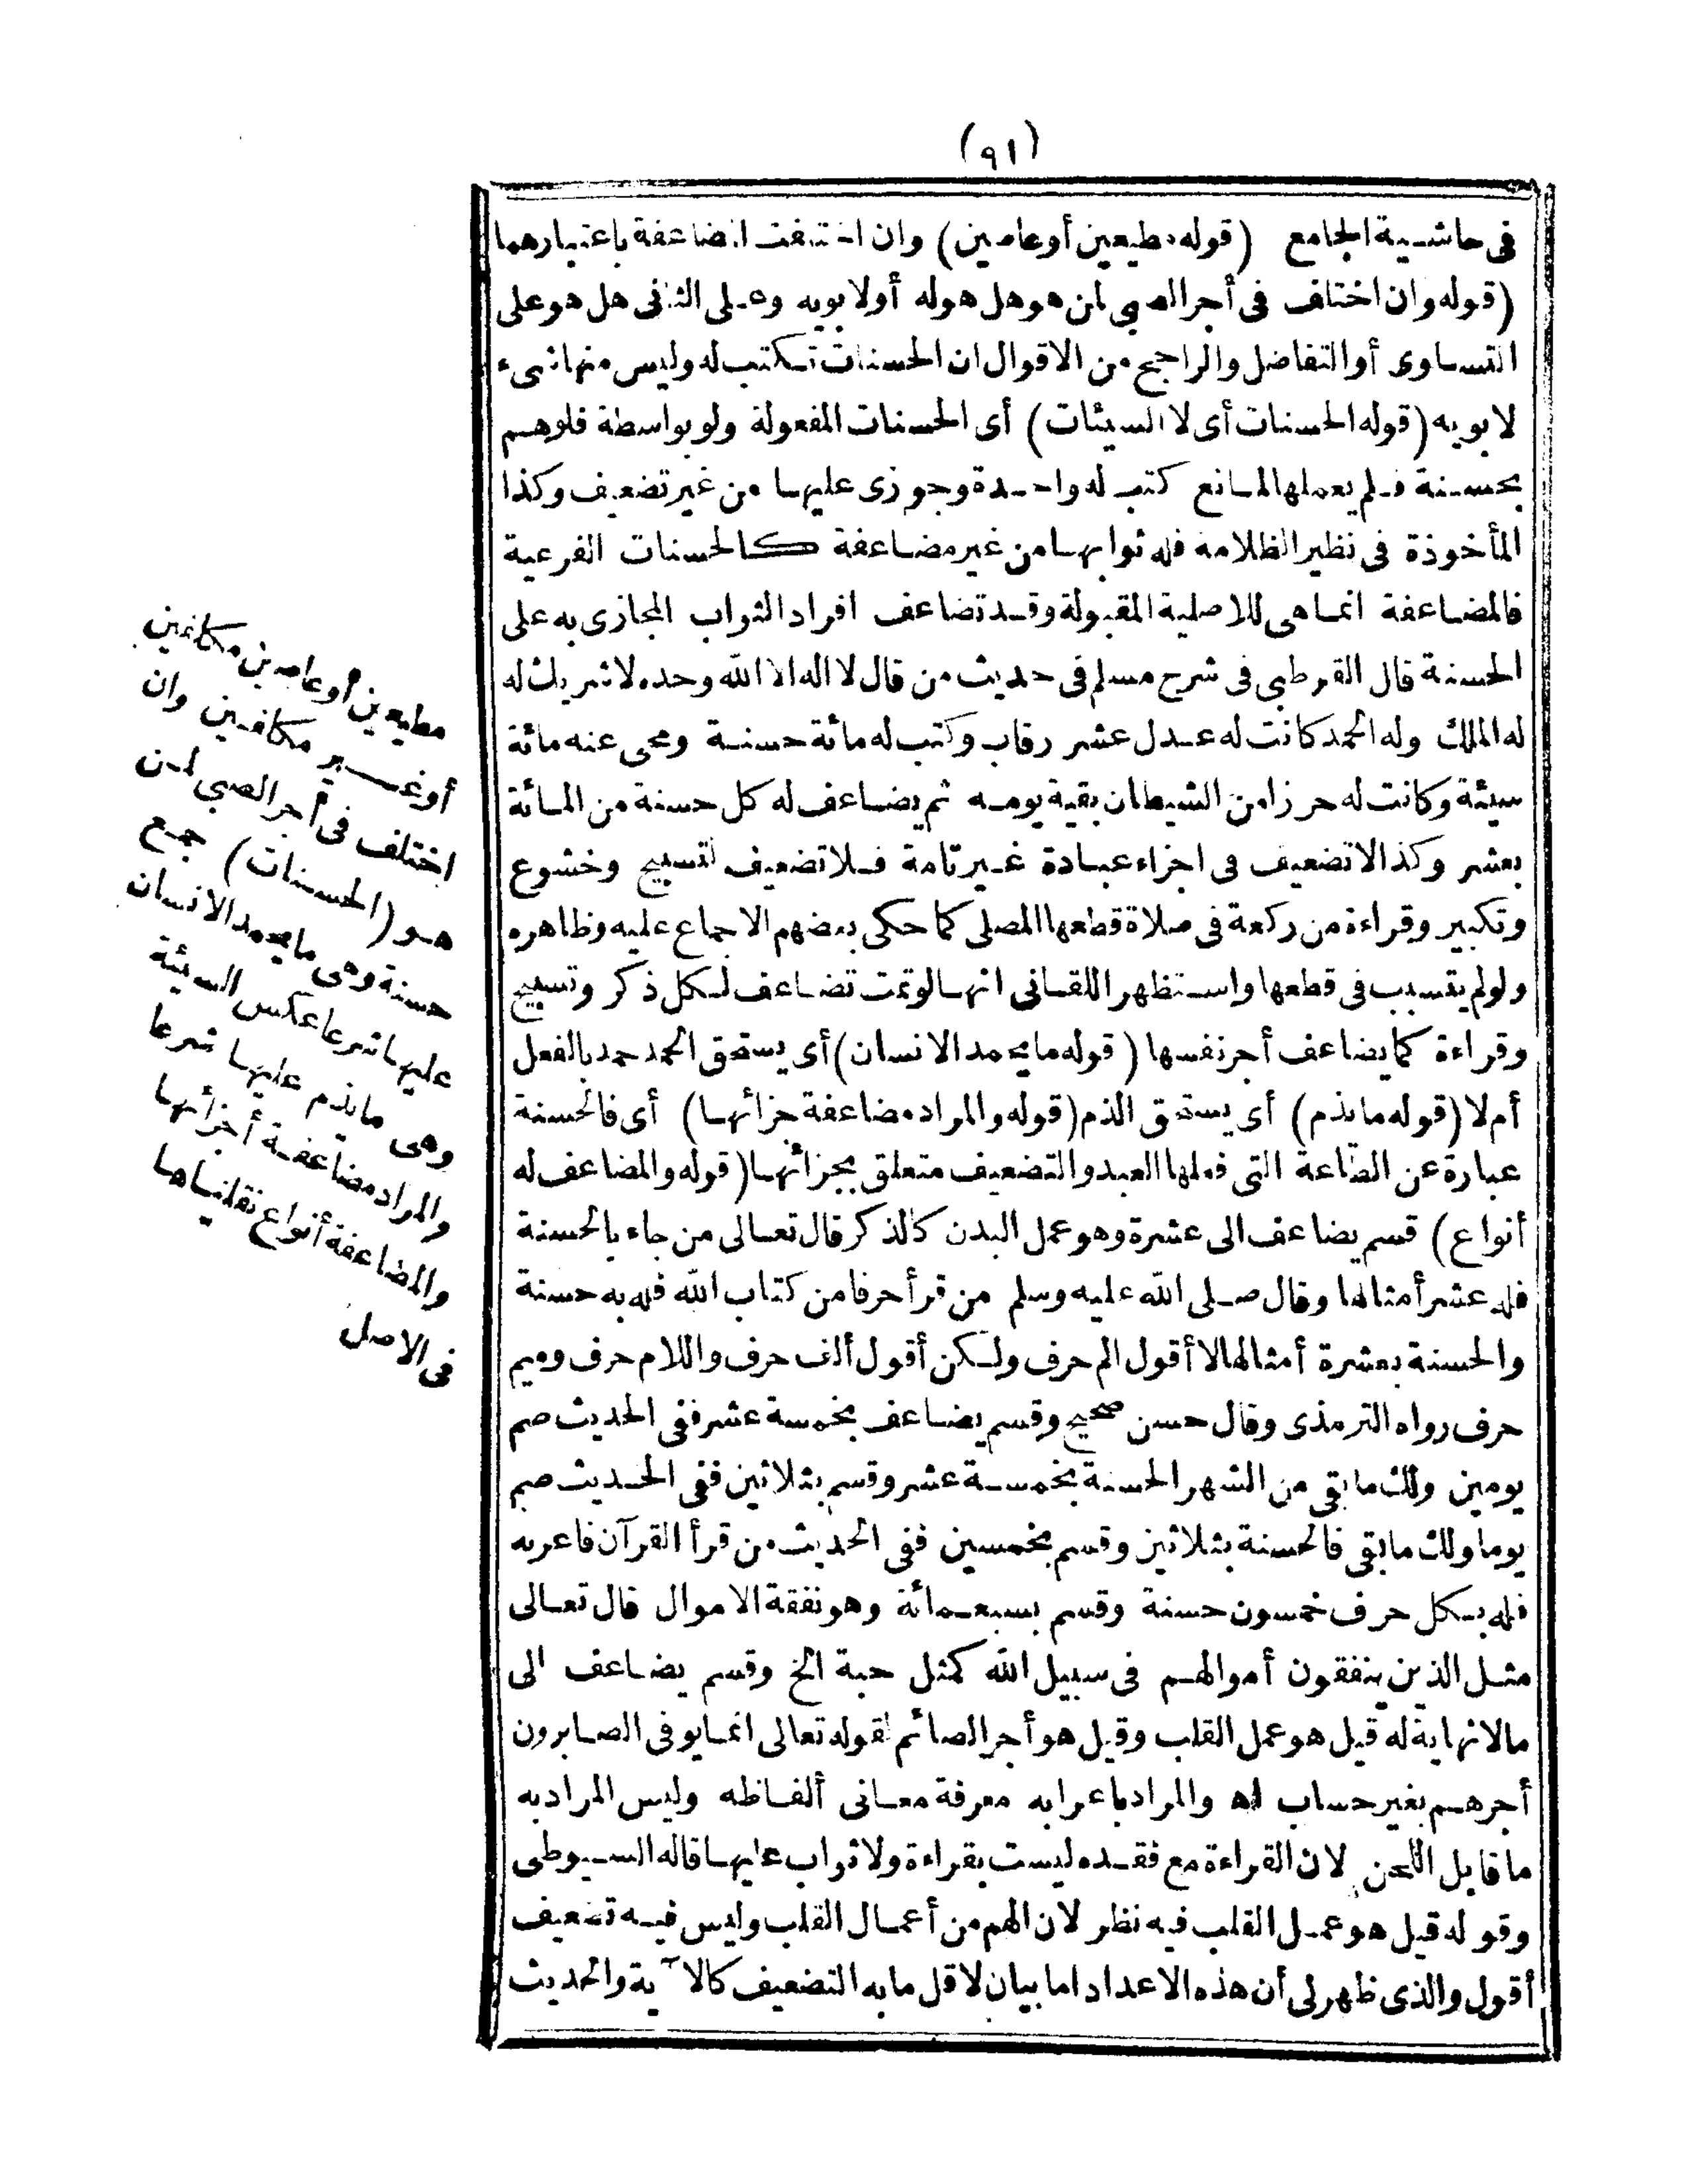 (٩١)
فى حاشية الجامع (قوله مطيعين أو عاصين) وان اختلفت المضاعفة باعتبارهما
(قوله وان اختلف فى أجر الصبى لمن هو هل هو له أولابويه وعلى الثانى هل هو على
التساوى أو التفاضل والراجح من الاقوال ان الحسنات تكتب له وليس منها شىء
لابويه (قوله الحسنات أى لا السيئات) أى الحسنات المفعولة ولو بواسطة فلوهم
بحسنة فلم يعملها لمانع كتب له واحدة وجوزى عليها من غير تضعيف وكذا
المأخوذة فى نظير الظلامة فله ثوابها من غير مضاعفة كالحسنات الفرعية
فالمضاعفة انما هى للاصلية المقبولة وقد تضاعف افراد الثواب المجازى به على
الحسنة قال القرطبى فى شرح مسلم فى حديث من قال لا اله الا الله وحده لا شريك له
له الملك وله الحمد كانت له عدل عشر رقاب وكتب له مائة حسنة ومحى عنه مائة
سيئة وكانت له حرزا من الشيطان بقية يومه ثم يضاعف له كل حسنة من المائة
بعشر وكذا لا تضعيف فى اجزاء عبادة غير تامة فلا تضعيف لتسبيح وخشوع
وتكبير وقراءة من ركعة فى صلاة قطعها المصلى كما حكى بعضهم الاجماع عليه وظاهره
ولو لم يتسبب فى قطعها واستظهر اللقانى انها لو تمت تضاعف لكل ذكر وتسبيح
وقراءة كما يضاعف أجر نفسها (قوله ما يحمد الانسان) أى يستحق الحمد حمد بالفعل
أم لا (قوله ما يذم) أى يستحق الذم (قوله والمراد مضاعفة جزائها) أى فالحسنة
عبارة عن الطاعة التى فعلها العبد والتضعيف متعلق بجزائها (قوله والمضاعف له
أنواع) قسم يضاعف الى عشرة وهو عمل البدن كالذكر قال تعالى من جاء بالحسنة
فله عشر أمثالها وقال صلى الله عليه وسلم من قرأ حرفا من كتاب الله فله به حسنة
والحسنة بعشرة أمثالها لا أقول الم حرف ولكن أقول ألف حرف واللام حرف وميم
حرف رواه الترمذى وقال حسن صحيح وقسم يضاعف بخمسة عشر ففى الحديث صم
يومين ولك ما بقى من الشهر الحسنة بخمسة عشر وقسم بثلاثين ففى الحديث صم
يوما ولك ما بقى فالحسنة بثلاثين وقسم بخمسين ففى الحديث من قرأ القرآن فاعربه
فله بكل حرف خمسون حسنة وقسم بسبعمائة وهو نفقة الاموال قال تعالى
مثل الذين ينفقون أموالهم فى سبيل الله كمثل حبة الخ وقسم يضاعف الى
مالا نهاية له قيل هو عمل القلب وقيل هو أجر الصائم لقوله تعالى انما يوفى الصابرون
أجرهم بغير حساب اه والمراد باعرابه معرفة معانى ألفاظه وليس المراد به
ما قابل اللحن لان القراءة مع فقده ليست بقراءة ولا ثواب عليها قاله السيوطى
وقوله قيل هو عمل القلب فيه نظر لان الهم من أعمال القلب وليس فيه تضعيف
أقول والذى ظهر لى أن هذه الاعداد اما بيان لاقل ما به التضعيف كالآية والحديث
مطيعين أو عاصين مكلفين
أو غير مكلفين وان
اختلف فى أجر الصبى لمن
هو (الحسنات) جمع
حسنة وهى ما يحمد الانسان
عليها شرعا عكس السيئة
وهى ما يذم عليها شرعا
والمراد مضاعفة أجزائها
والمضاعفة أنواع نقلناها
فى الاصل